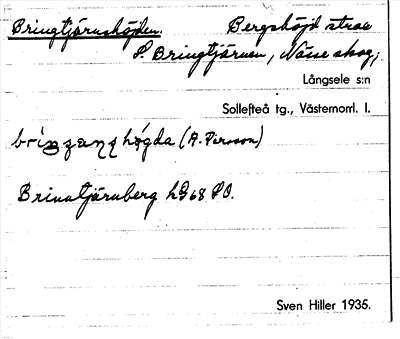 Bringtjärnshöjden. Bergshöjd strax
S. Bringtjärnen, Nässe skog,
Långsele s:n
Sollefteå tg., Västernorrl. l.
högda (A. Persson)
Brinntjärnberg hg 68 SO.
Sven Hiller 1935.